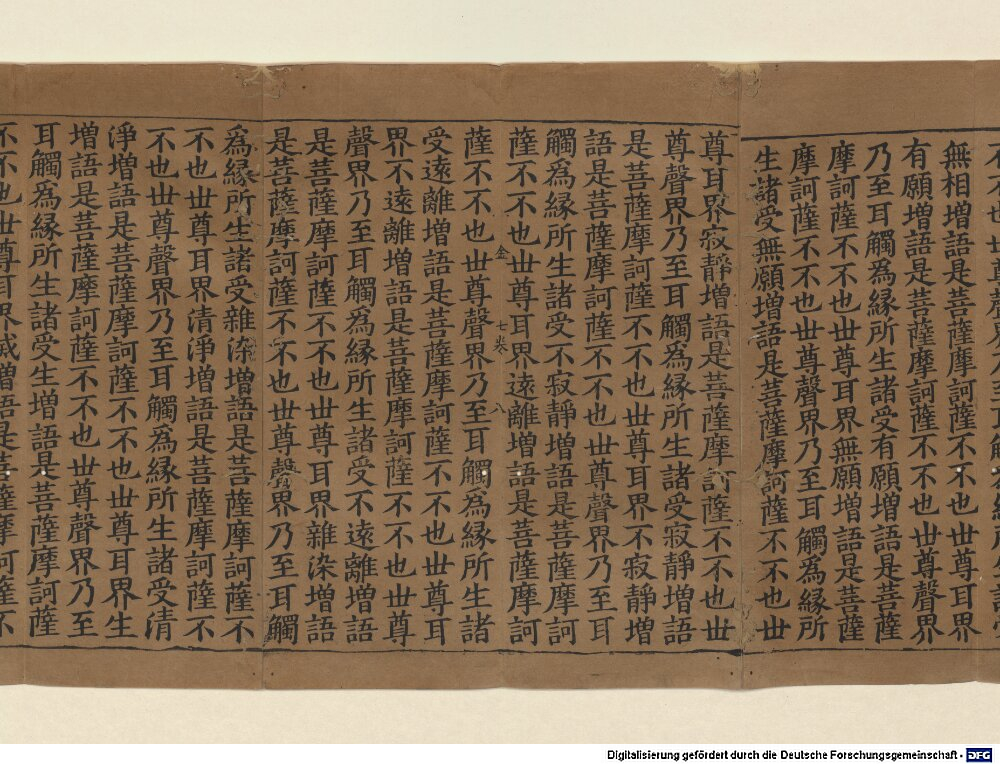 無相增語是菩薩摩訶薩不不也世尊耳界
有願增語是菩薩摩訶薩不不也世尊聲界
乃至耳觸爲緣所生諸受有願增語是菩薩
摩訶薩不不也世尊耳界無願增語是菩薩
摩訶薩不不也世尊聲界乃至耳觸爲緣所
生諸受無願增語是菩薩摩訶薩不不也世
尊耳界寂靜增語是菩薩摩訶薩不不也世
尊聲界乃至耳觸爲緣所生諸受寂靜增語
是菩薩摩訶薩不不也世尊耳界不寂靜增
語是菩薩摩訶薩不不也世尊聲界乃至耳
觸爲緣所生諸受不寂靜增語是菩薩摩訶
薩不不也世尊耳界遠離增語是菩薩摩訶
金 七卷 八
薩不不也世尊聲界乃至耳觸爲緣所生諸
受遠離增語是菩薩摩訶薩不不也世尊耳
界不遠離增語是菩薩摩訶薩不不也世尊
聲界乃至耳觸爲緣所生諸受不遠離增語
是菩薩摩訶薩不不也世尊耳界雜染增語
是菩薩摩訶薩不不也世尊聲界乃至耳觸
爲緣所生諸受雜染增語是菩薩摩訶薩不
不也世尊耳界清淨增語是菩薩摩訶薩不
不也世尊聲界乃至耳觸爲緣所生諸受清
淨增語是菩薩摩訶薩不不也世尊耳界生
增語是菩薩摩訶薩不不也世尊聲界乃至
耳觸爲緣所生諸受生增語是菩薩摩訶薩
不不也世尊耳界滅增語是菩薩摩訶薩不
Digitalisierung gefördert durch die Deutsche Forschungsgemeinschaft - DFG